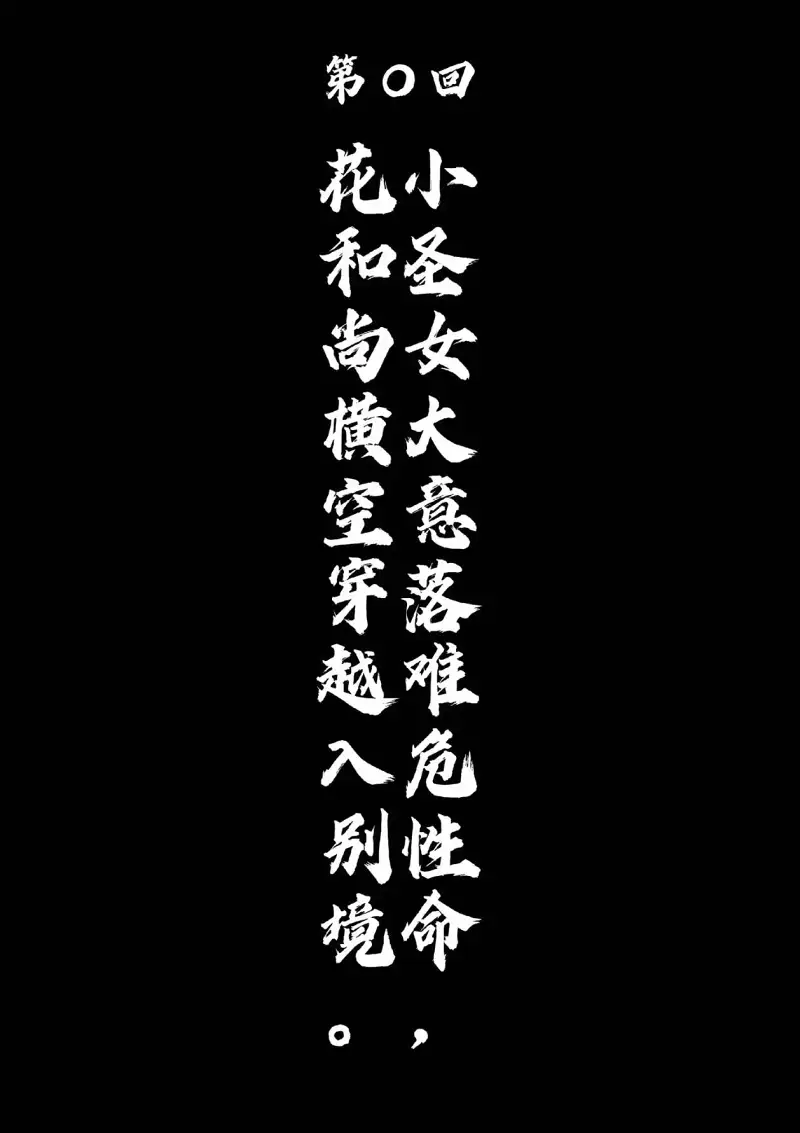 第〇回
小圣女大意落难危性命，
花和尚横空穿越入别境。